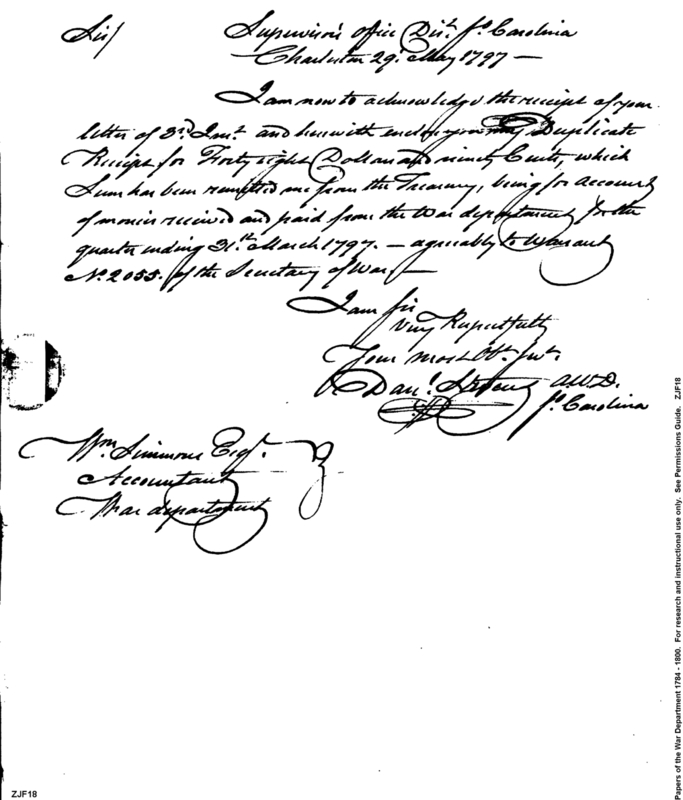 Sir/ Supervisor's office Dist. So. Carolina
Charleston 29. May 1797 —
I am now to acknowledge the receipt of your
letter of 3rd. Inst. and herewith enclose you my Duplicate
Receipt for Forty eight Dollars and ninety Cents, which
Sum has been remitted me from the Treasury, being for account
of monies received and paid from the War department for the
quarter ending 31st. March 1797. — agreeably to Warrant
No. 2055. of the Secretary of War, —
I am Sir
Very Respectfully
Your most Obt. Svt.
Danl. Stevens A.W.D.
So. Carolina
Wm. Simmons Esqr.
Accountant
War department
ZJF18
Papers of the War Department 1784 - 1800. For research and instructional use only. See Permissions Guide. ZJF18